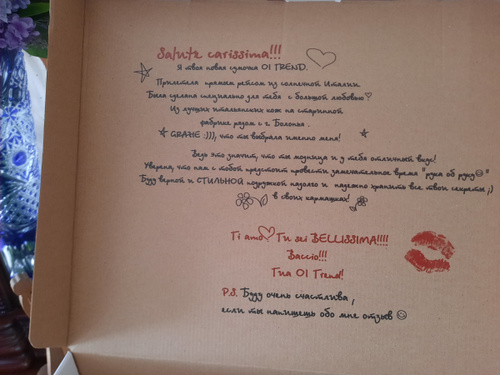 Salute carissima!!!
Я твоя новая сумочка O1 TREND.
Прилетела прямым рейсом из солнечной Италии.
Была сделана специально для тебя с большой любовью
Из лучших итальянских кож на старинной
фабрике рядом с г. Болонья.
GRAZIE :))), что ты выбрала именно меня!
Ведь это значит, что ты модница и у тебя отличный вкус!
Уверена, что нам с тобой предстоит провести замечательное время "рука об руку☺"
Буду верной и СТИЛЬНОЙ подружкой надолго и надежно хранить все твои секреты ;)
в своих кармашках!
Ti amo♡ Tu sei BELLISSIMA!!!!
Baccio!!!
Tua O1 Trend!
P.S. Буду очень счастлива,
если ты напишешь обо мне отзыв ☺